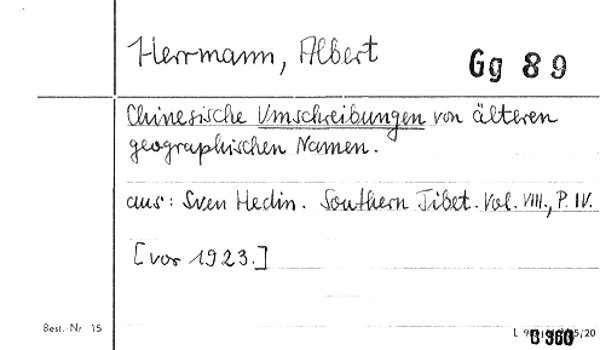 Herrmann, Albert
Gg 89
Chinesische Umschreibungen von älteren
geographischen Namen.
aus: Sven Hedin. Southern Tibet. Vol. VIII., P. IV.
[vor 1923.]
Best.-Nr 15
B 360